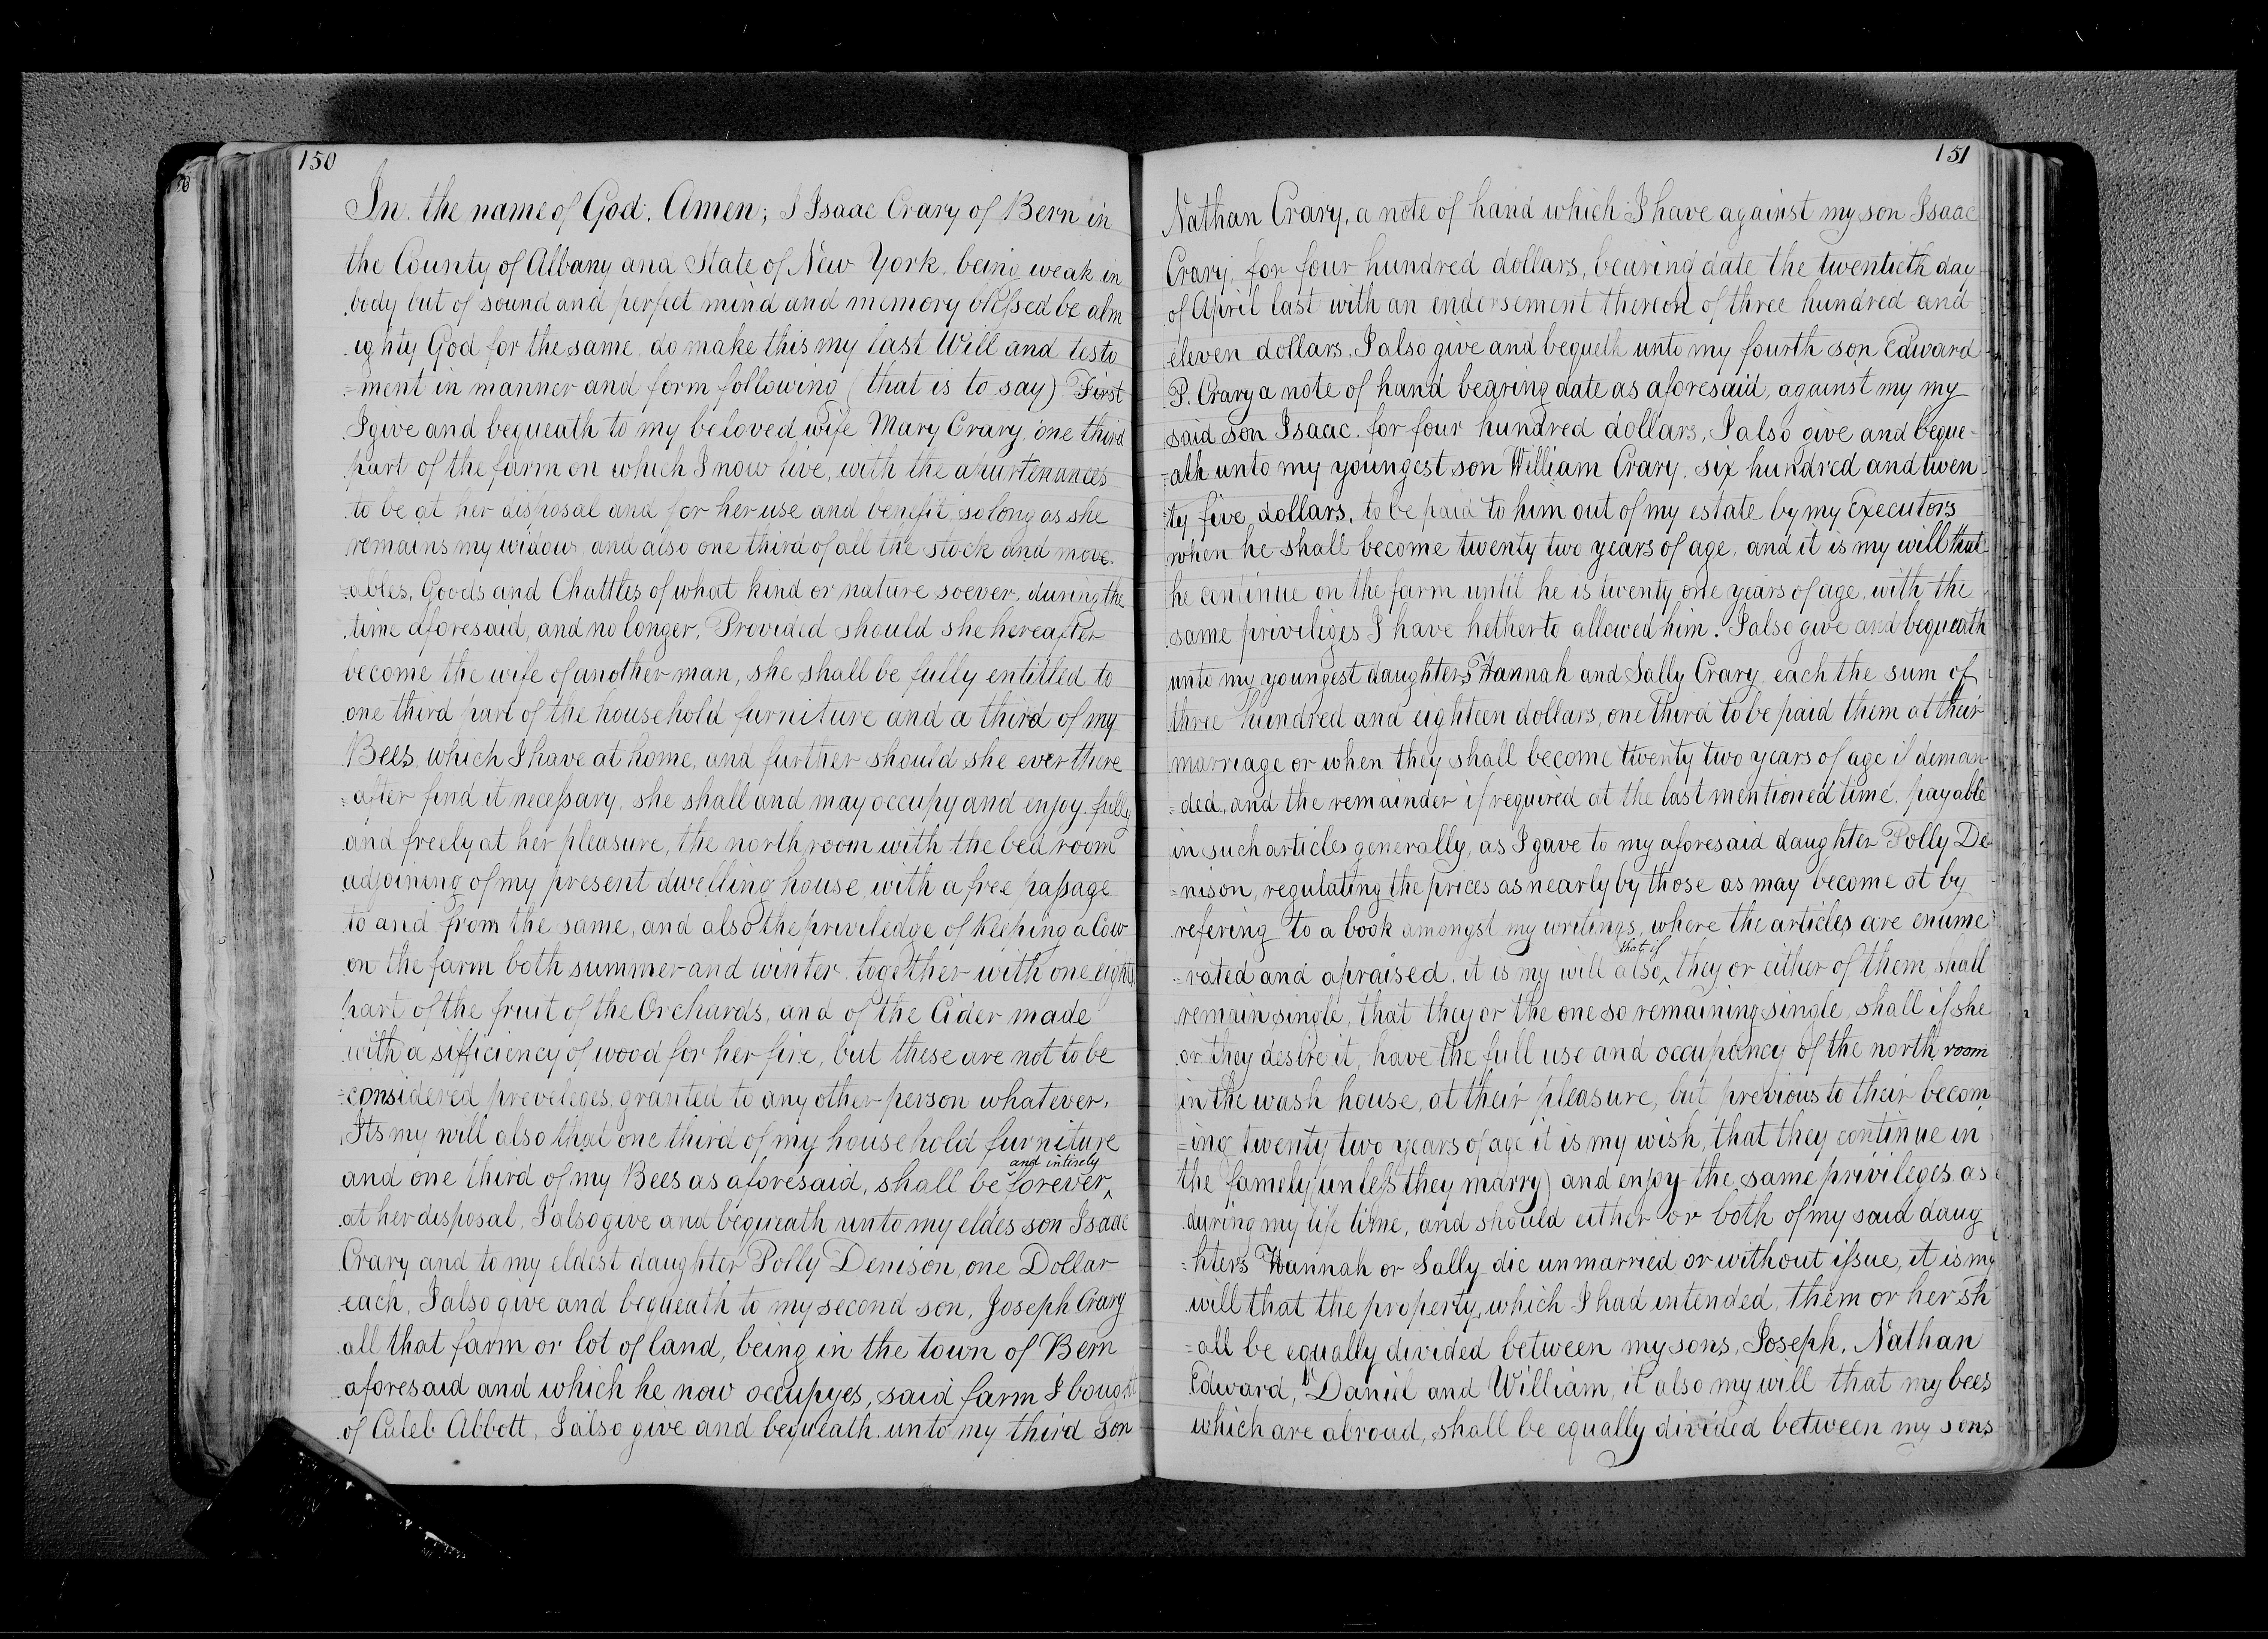 150
In the name of God. Amen; I Isaac Crary of Bern in
the County of Albany and State of New York, being weak in
body but of sound and perfect mind and memory blessed be alm
ighty God for the same, do make this my last Will and testa
=ment in manner and form following (that is to say) First
I give and bequeath to my beloved wife Mary Crary, one third
part of the farm on which I now live, with the apurtinances
to be at her disposal and for her use and benefit so long as she
remains my widow and also one third of all the stock and move
=ables, Goods and Chattles of what kind or nature soever, during the
time aforesaid, and no longer, Provided should she hereafter
become the wife of another man, she shall be fully entitled to
one third part of the household furniture and a third of my
Bees, which I have at home, and further should she ever there
=after find it necessary, she shall and may occupy and enjoy fully
and freely at her pleasure, the north room with the bed room
adjoining of my present dwelling house with a free passage
to and from the same, and also the priviledge of keeping a Cow
on the farm both summer and winter, together with one eighth
part of the fruit of the Orchards, and of the Cider made
with a sifficiency of wood for her fire, but these are not to be
=considered preveleges, granted to any other person whatever.
Its my will also that one third of my household furniture
and one third of my Bees as aforesaid, shall be forever and intirely
at her disposal, I also give and bequeath unto my eldes son Isaac
Crary and to my eldest daughter Polly Denison, one Dollar
each, I also give and bequeath to my second son, Joseph Crary
all that farm or lot of land, being in the town of Bern
aforesaid and which he now occupyes, said farm I bought
of Caleb Abbott, I also give and bequeath unto my third son
151
Nathan Crary, a note of hand which I have against my son Isaac
Crary, for four hundred dollars, bearing date the twentieth day
of April last with an endorsement thereon of three hundred and
eleven dollars, I also give and bequeth unto my fourth son Edward
P. Crary a note of hand bearing date as aforesaid, against my my
said son Isaac, for four hundred dollars, I also give and beque-
=ath unto my youngest son William Crary, six hundred and twen
ty five dollars, to be paid to him out of my estate by my Executors
when he shall become twenty two years of age, and it is my will that
he continue on the farm until he is twenty one years of age, with the
same priviliges I have hetherto allowed him. I also give and bequeath
unto my youngest daughters Hannah and Sally Crary each the sum of
three hundred and eighteen dollars, one third to be paid them at their
marriage or when they shall become twenty two years of age if deman
=ded, and the remainder if required at the last mentioned time, payable
in such articles generally, as I gave to my aforesaid daughter Polly De
=nison, regulating the prices as nearly by those as may become at by
refering to a book amongst my writings, where the articles are enume
=rated and apraised, it is my will also that if they or either of them shall
remain single, that they or the one so remaining single, shall if she
or they desire it, have the full use and occupancy of the north room
in the wash house, at their pleasure, but previous to their becom
=ing twenty two years of age it is my wish, that they continue in
the famely (unless they marry) and enjoy the same privileges as
during my life time, and should either or both of my said daug
=hters Hannah or Sally die unmarried or without issue, it is my
will that the property, which I had intended, them or her sh
=all be equally divided between my sons, Joseph, Nathan
Edward, Daniel and William, it also my will that my bees
which are abroad, shall be equally divided between my sons